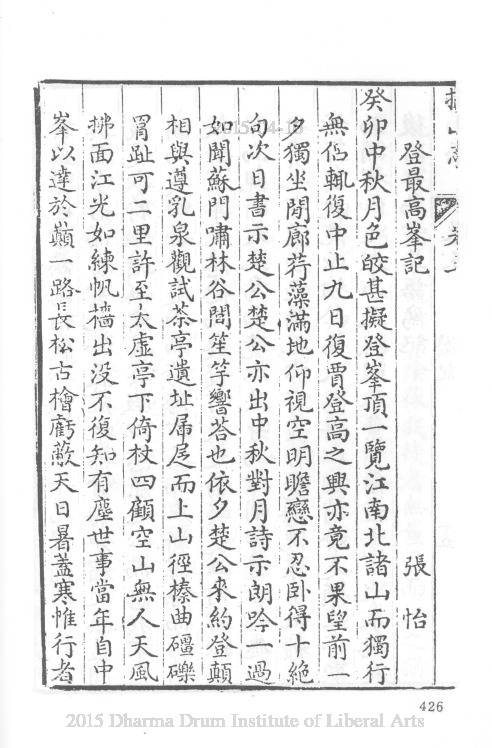 攝山志 卷
登最高峯記 張怡
癸卯中秋月色皎甚擬登峯頂一覽江南北諸山而獨行
無侶輒復中止九日復賈登高之興亦竟不果望前一
夕獨坐閒廊荇藻滿地仰視空明瞻戀不忍卧得十絶
句次日書示楚公楚公亦出中秋對月詩示朗吟一過
如聞蘇門嘯林谷間笙竽響荅也依夕楚公來約登顛
相與遵乳泉觀試茶亭遺址屚𡰥而上山徑榛曲礓礫
罥趾可二里許至太虛亭下倚杖四顧空山無人天風
拂面江光如練帆檣出没不復知有塵世事當年自中
峯以達於巔一路長松古檜虧蔽天日暑蓋寒帷行者
426
2015-04-16
2015 Dharma Drum Institute of Liberal Arts